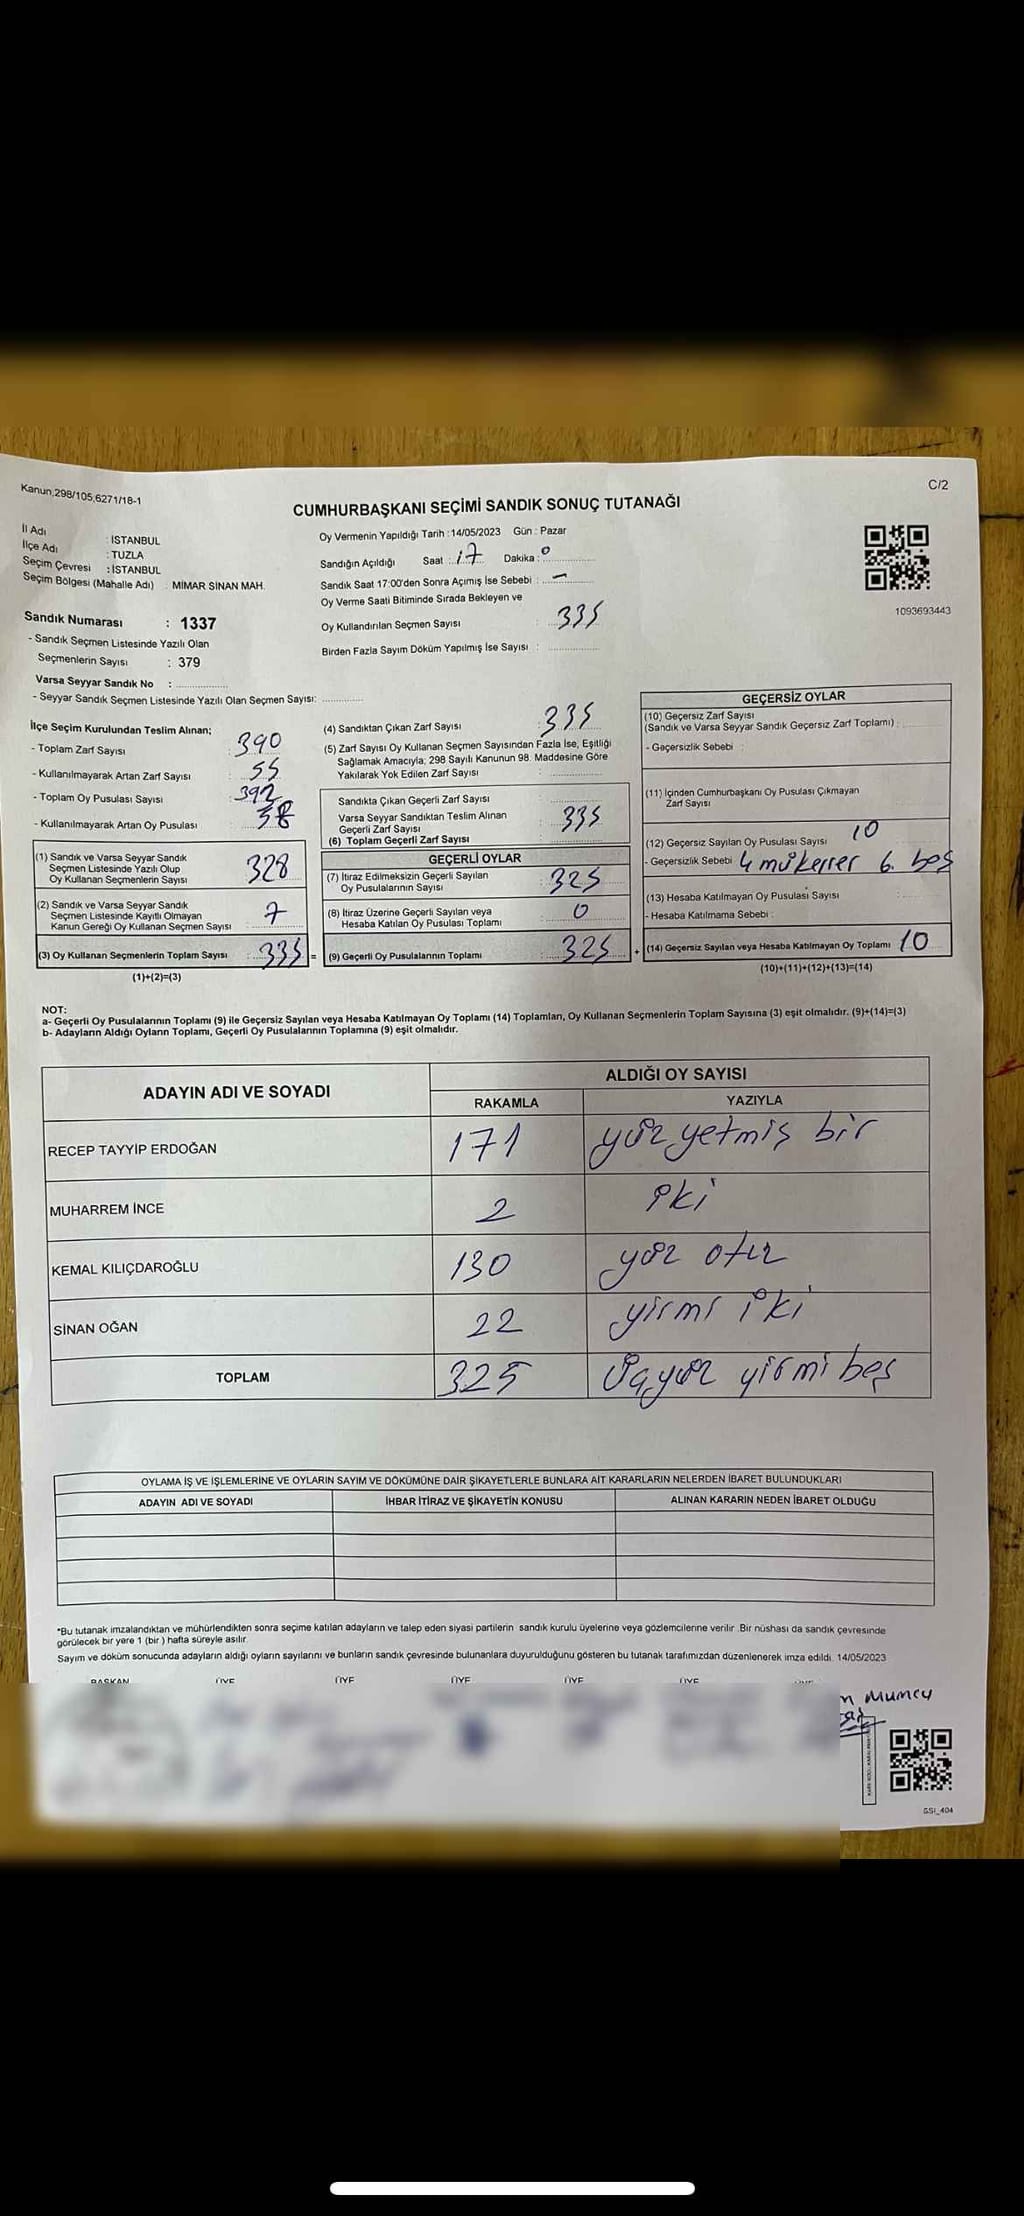 Kanun,298/105,6271/18-1
C/2
CUMHURBAŞKANI SEÇİMİ SANDIK SONUÇ TUTANAĞI
İl Adı : İSTANBUL
İlçe Adı : TUZLA
Seçim Çevresi : İSTANBUL
Seçim Bölgesi (Mahalle Adı) : MİMAR SİNAN MAH.
Oy Vermenin Yapıldığı Tarih : 14/05/2023 Gün : Pazar
Sandığın Açıldığı Saat : 17 Dakika : 0
Sandık Saat 17:00'den Sonra Açımış İse Sebebi : -
Oy Verme Saati Bitiminde Sırada Bekleyen ve
Oy Kullandırılan Seçmen Sayısı : 335
Birden Fazla Sayım Döküm Yapılmış İse Sayısı :
1093693443
Sandık Numarası : 1337
- Sandık Seçmen Listesinde Yazılı Olan
Seçmenlerin Sayısı : 379
Varsa Seyyar Sandık No :
- Seyyar Sandık Seçmen Listesinde Yazılı Olan Seçmen Sayısı:
İlçe Seçim Kurulundan Teslim Alınan;
- Toplam Zarf Sayısı : 390
- Kullanılmayarak Artan Zarf Sayısı : 55
- Toplam Oy Pusulası Sayısı : 392
- Kullanılmayarak Artan Oy Pusulası :
(1) Sandık ve Varsa Seyyar Sandık
Seçmen Listesinde Yazılı Olup
Oy Kullanan Seçmenlerin Sayısı : 328
(2) Sandık ve Varsa Seyyar Sandık
Seçmen Listesinde Kayıtlı Olmayan
Kanun Gereği Oy Kullanan Seçmen Sayısı : 7
(3) Oy Kullanan Seçmenlerin Toplam Sayısı : 335 =
(1)+(2)=(3)
(4) Sandıktan Çıkan Zarf Sayısı : 335
(5) Zarf Sayısı Oy Kullanan Seçmen Sayısından Fazla İse, Eşitliği
Sağlamak Amacıyla; 298 Sayılı Kanunun 98. Maddesine Göre
Yakılarak Yok Edilen Zarf Sayısı :
Sandıkta Çıkan Geçerli Zarf Sayısı
Varsa Seyyar Sandıktan Teslim Alınan
Geçerli Zarf Sayısı : 335
(6) Toplam Geçerli Zarf Sayısı
GEÇERLİ OYLAR
(7) İtiraz Edilmeksizin Geçerli Sayılan
Oy Pusulalarının Sayısı : 325
(8) İtiraz Üzerine Geçerli Sayılan veya
Hesaba Katılan Oy Pusulası Toplamı : 0
(9) Geçerli Oy Pusulalarının Toplamı : 325 +
GEÇERSİZ OYLAR
(10) Geçersiz Zarf Sayısı
(Sandık ve Varsa Seyyar Sandık Geçersiz Zarf Toplamı) :
- Geçersizlik Sebebi :
(11) İçinden Cumhurbaşkanı Oy Pusulası Çıkmayan
Zarf Sayısı
(12) Geçersiz Sayılan Oy Pusulası Sayısı : 10
- Geçersizlik Sebebi 4 mükerrer 6. boş
(13) Hesaba Katılmayan Oy Pusulası Sayısı :
- Hesaba Katılmama Sebebi :
(14) Geçersiz Sayılan veya Hesaba Katılmayan Oy Toplamı 10
(10)+(11)+(12)+(13)=(14)
NOT:
a- Geçerli Oy Pusulalarının Toplamı (9) ile Geçersiz Sayılan veya Hesaba Katılmayan Oy Toplamı (14) Toplamları, Oy Kullanan Seçmenlerin Toplam Sayısına (3) eşit olmalıdır. (9)+(14)=(3)
b- Adayların Aldığı Oyların Toplamı, Geçerli Oy Pusulalarının Toplamına (9) eşit olmalıdır.
ADAYIN ADI VE SOYADI ALDIĞI OY SAYISI
RAKAMLA YAZIYLA
RECEP TAYYİP ERDOĞAN 171 yüz yetmiş bir
MUHARREM İNCE 2 iki
KEMAL KILIÇDAROĞLU 130 yüz otuz
SİNAN OĞAN 22 yirmi iki
TOPLAM 325 Üçyüz yirmi beş
OYLAMA İŞ VE İŞLEMLERİNE VE OYLARIN SAYIM VE DÖKÜMÜNE DAİR ŞİKAYETLERLE BUNLARA AİT KARARLARIN NELERDEN İBARET BULUNDUKLARI
ADAYIN ADI VE SOYADI İHBAR İTİRAZ VE ŞİKAYETİN KONUSU ALINAN KARARIN NEDEN İBARET OLDUĞU
*Bu tutanak imzalandıktan ve mühürlendikten sonra seçime katılan adayların ve talep eden siyasi partilerin sandık kurulu üyelerine veya gözlemcilerine verilir .Bir nüshası da sandık çevresinde
görülecek bir yere 1 (bir ) hafta süreyle asılır.
Sayım ve döküm sonucunda adayların aldığı oyların sayılarını ve bunların sandık çevresinde bulunanlara duyurulduğunu gösteren bu tutanak tarafımızdan düzenlenerek imza edildi. 14/05/2023
BAŞKAN ÜYE ÜYE ÜYE ÜYE ÜYE
Mumcu
GSI_404